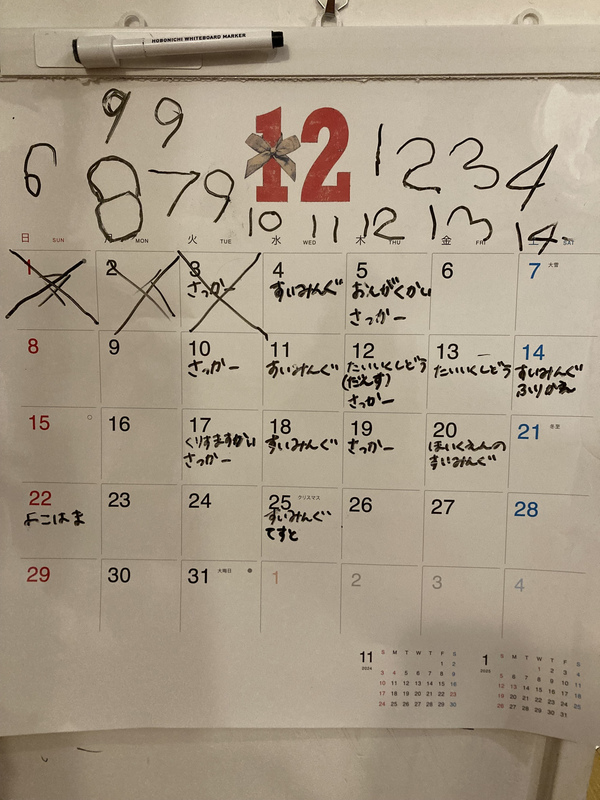 HOBONICHI WHITEBOARD MARKER
9 9
6 8 7 9
12
1 2 3 4
10 11 12 13 14
日 SUN 月 MON 火 TUE 水 WED 木 THU 金 FRI 土 SAT
1
2
3
さっかー
4
すいみんぐ
5
おんがくかい
さっかー
6
7 大雪
8
9
10
さっかー
11
すいみんぐ
12
たいいくしどう
(だんす)
さっかー
13
たいいくしどう
14
すいみんぐ
ふりかえ
15
16
17
くりすますかい
さっかー
18
すいみんぐ
19
さっかー
20
ほいくえんの
すいみんぐ
21 冬至
22
よこはま
23
24
25 クリスマス
すいみんぐ
てすと
26
27
28
29
30
31 大晦日
1
2
3
4
11
2024
S M T W T F S
1 2
3 4 5 6 7 8 9
10 11 12 13 14 15 16
17 18 19 20 21 22 23
24 25 26 27 28 29 30
1
2025
S M T W T F S
1 2 3 4
5 6 7 8 9 10 11
12 13 14 15 16 17 18
19 20 21 22 23 24 25
26 27 28 29 30 31